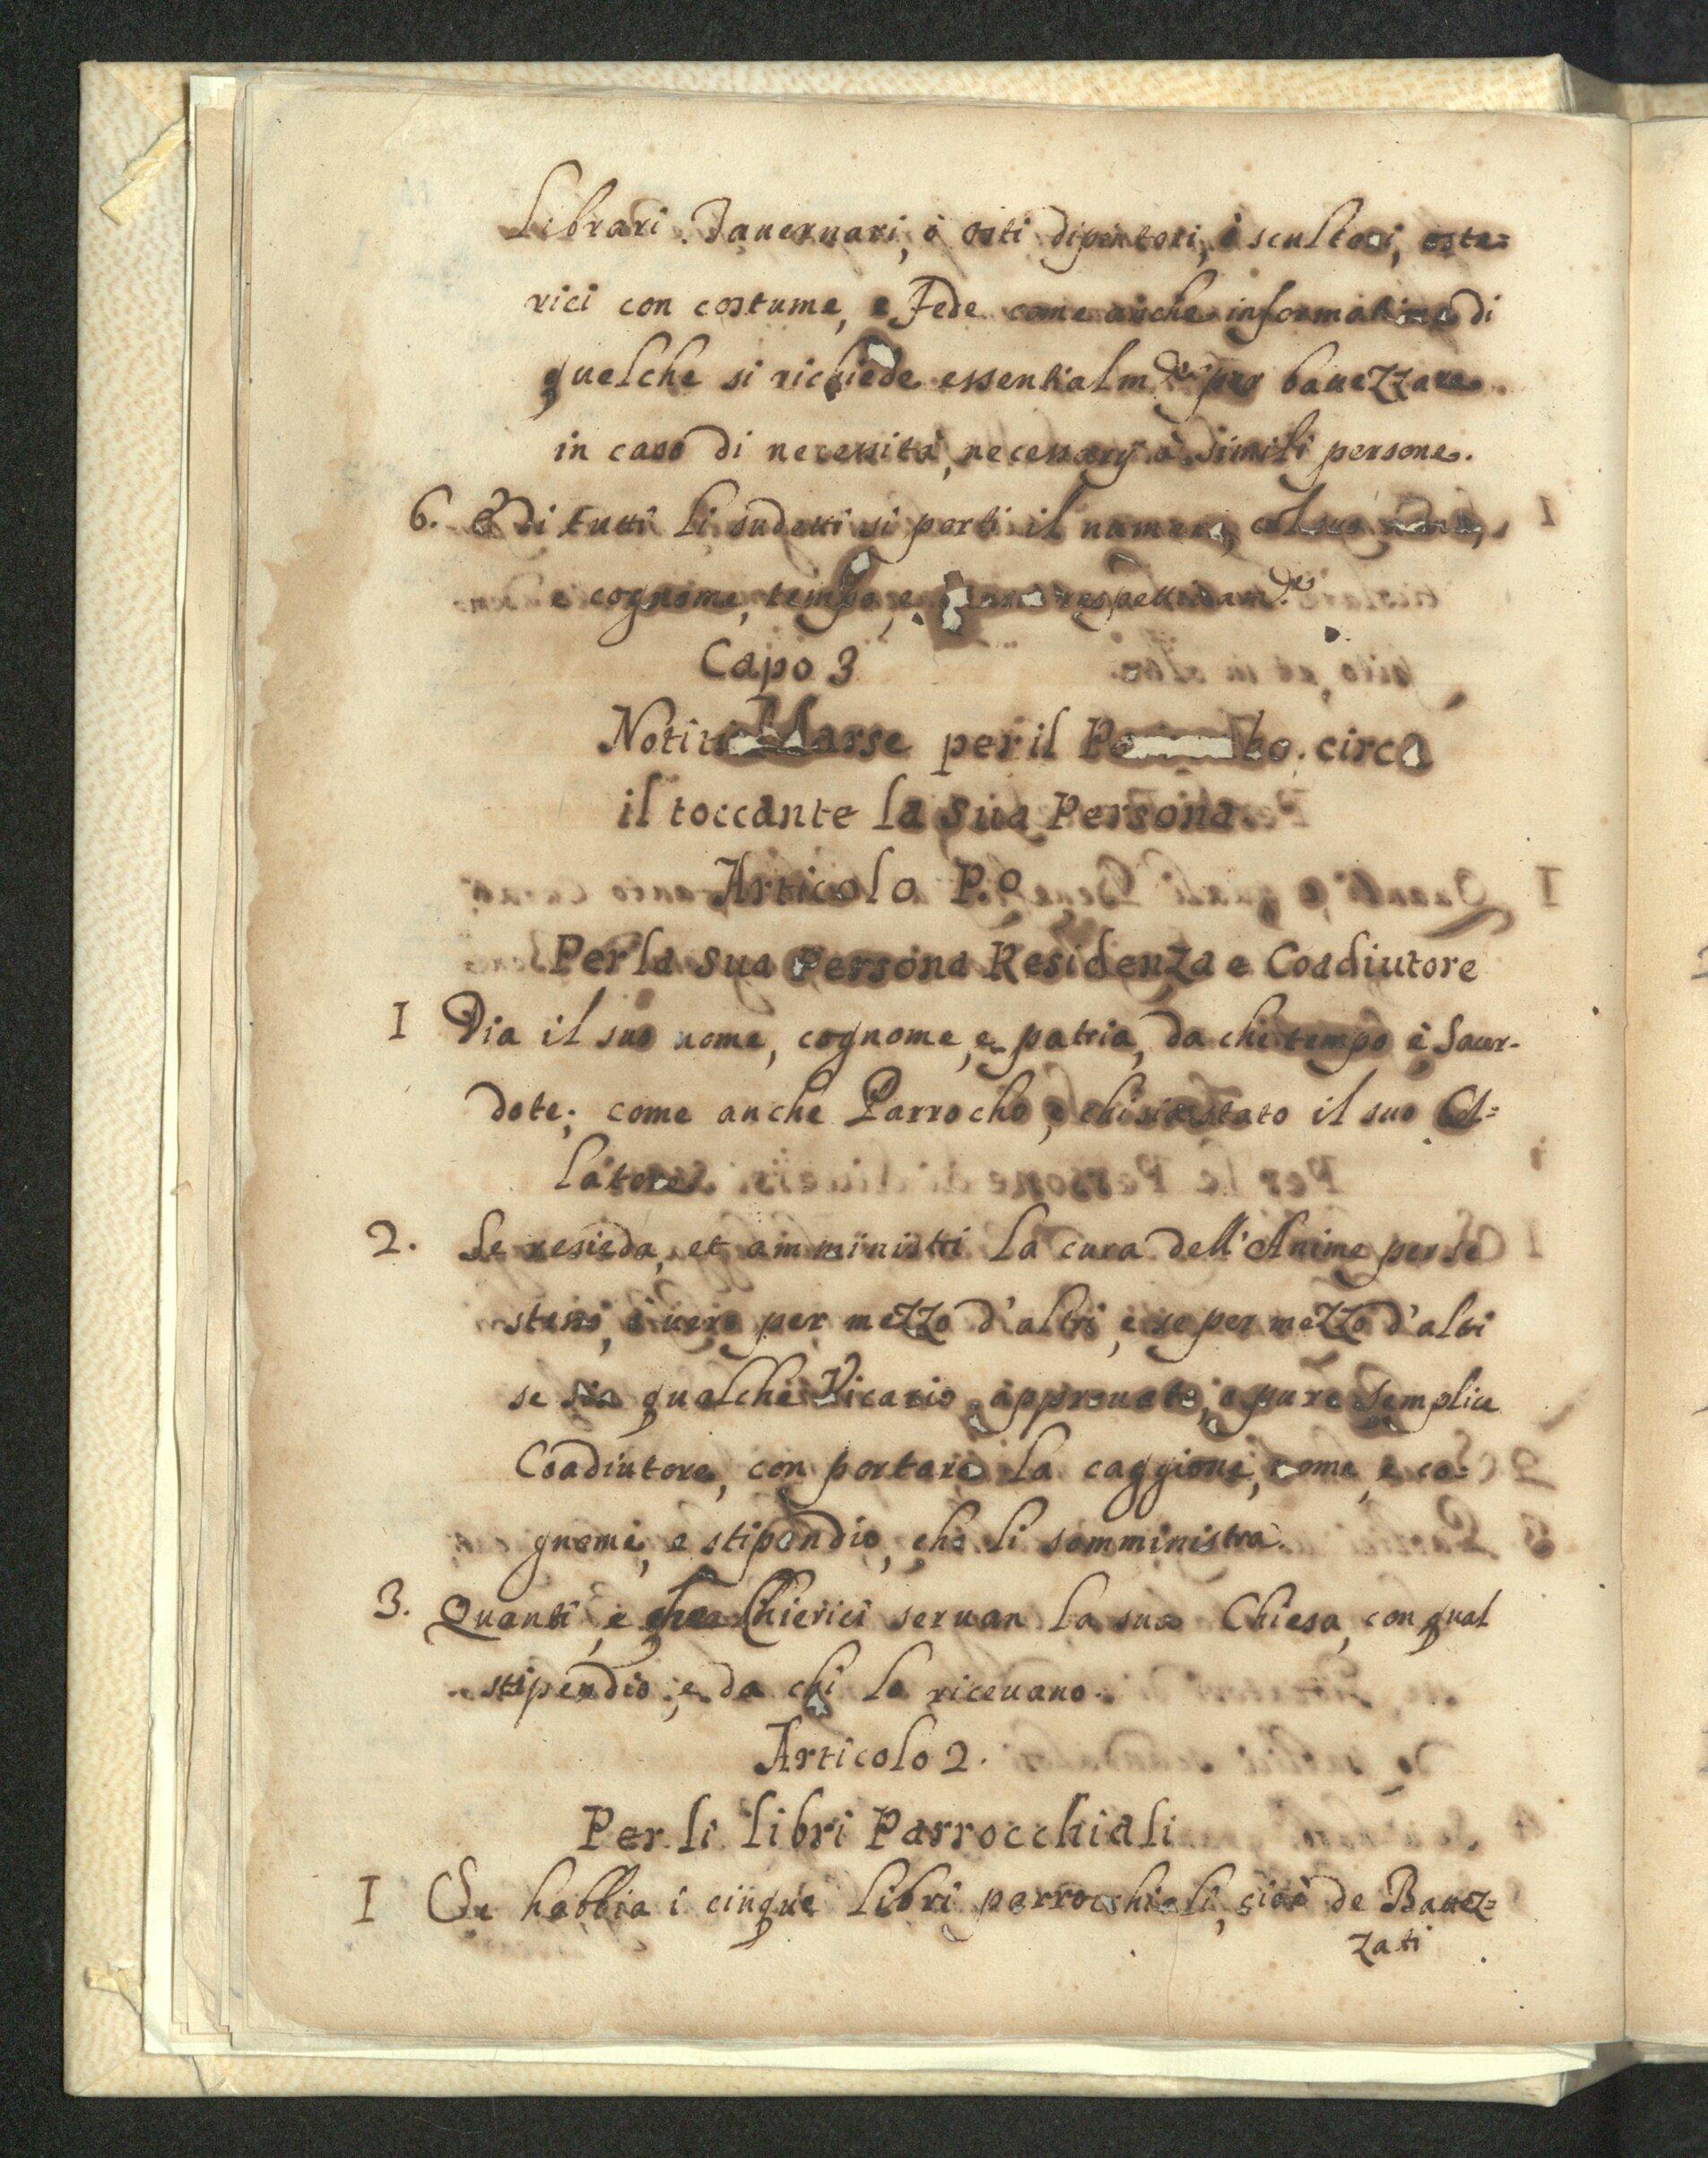 Librari. Tauernari, ò osti dipintori, ò scultori, oste=
rici con costume, e Fede come anche informatione di
quelche si richiede essentialm.te per bauezzare
in caso di necessità, necessarij à simili persone.
6. E di tutti li sudetti si porti il numero, col suo
e cognome, tempo, e respettiuam.te
Capo 3
arse per il circa
il toccante la sua Persona.
Articolo P.o
Per la sua Persona Residenza e Coadiutore
I Dia il suo nome, cognome, e patria, da chi tempo è Sacer-
dote; come anche Parrocho, e chi sia stato il suo Col=
latore.
2. Se resieda, et amministri la cura dell'Anime per se
stesso, ò uero per mezzo d'altri, e se per mezzo d'altri
se sia qualche Vicario approuato, o pure semplice
Coadiutore, con portare la caggione, nome, e co=
gnome, e stipendio, che li somministra.
3. Quanti, e che Chierici seruan la sua Chiesa, con qual
stipendio, e da chi lo riceuano.
Articolo 2.
Per li libri Parrocchiali
I Se habbia i cinque libri parrochiali, cioè de Bauez=
zati